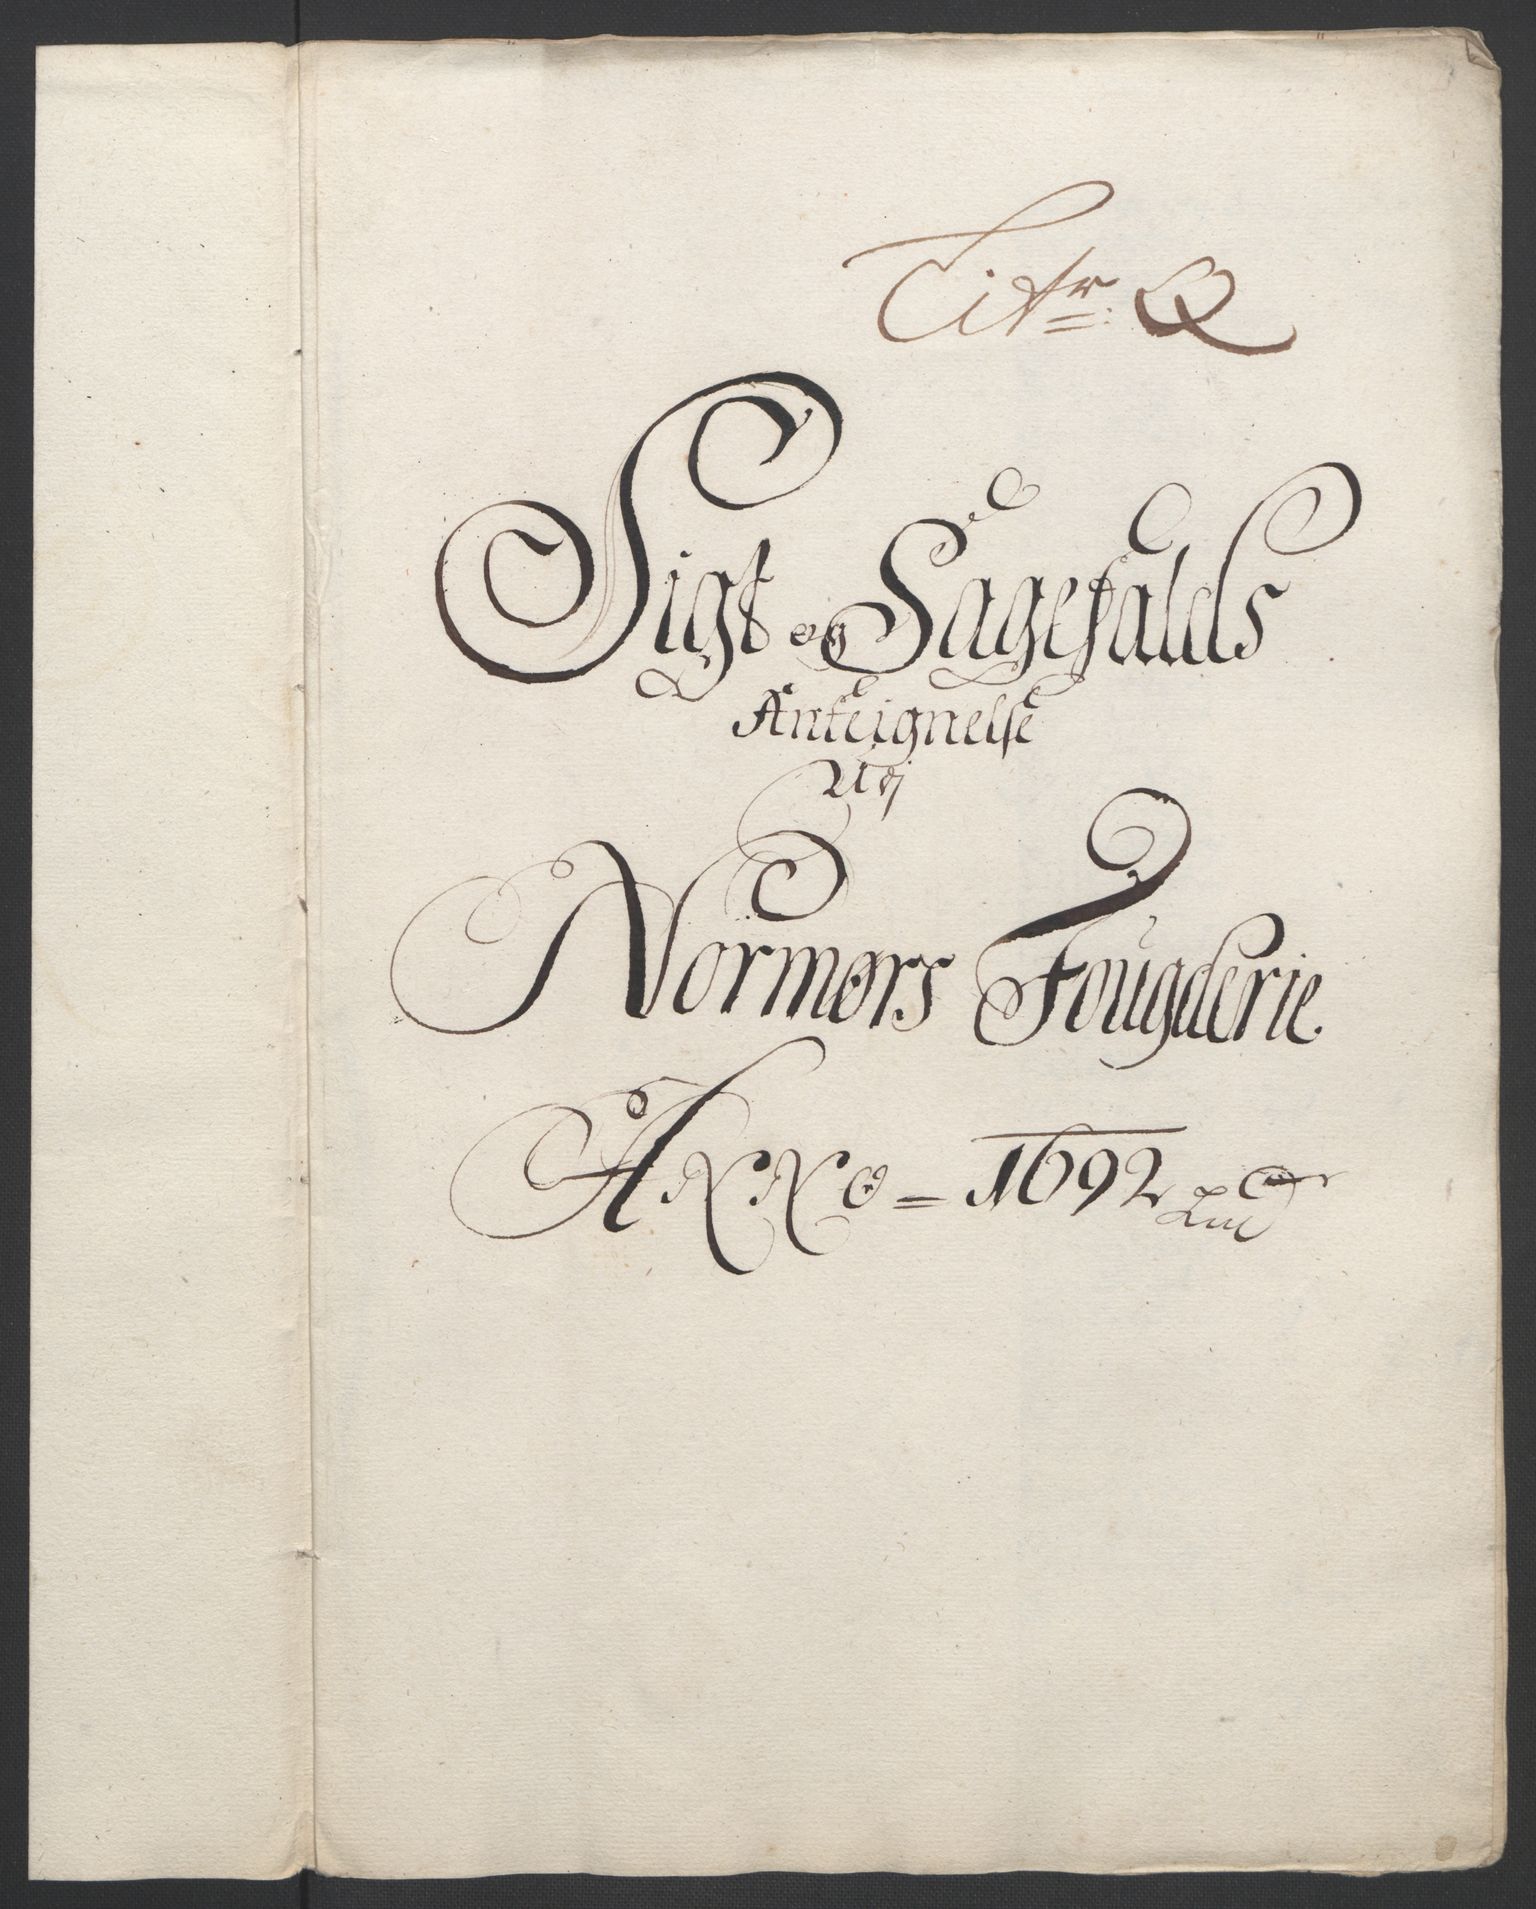 Litr: Q
Sigt og Sagefalds
Anteignelse
Udj
Normørs Fougderie.
Anno = 1692